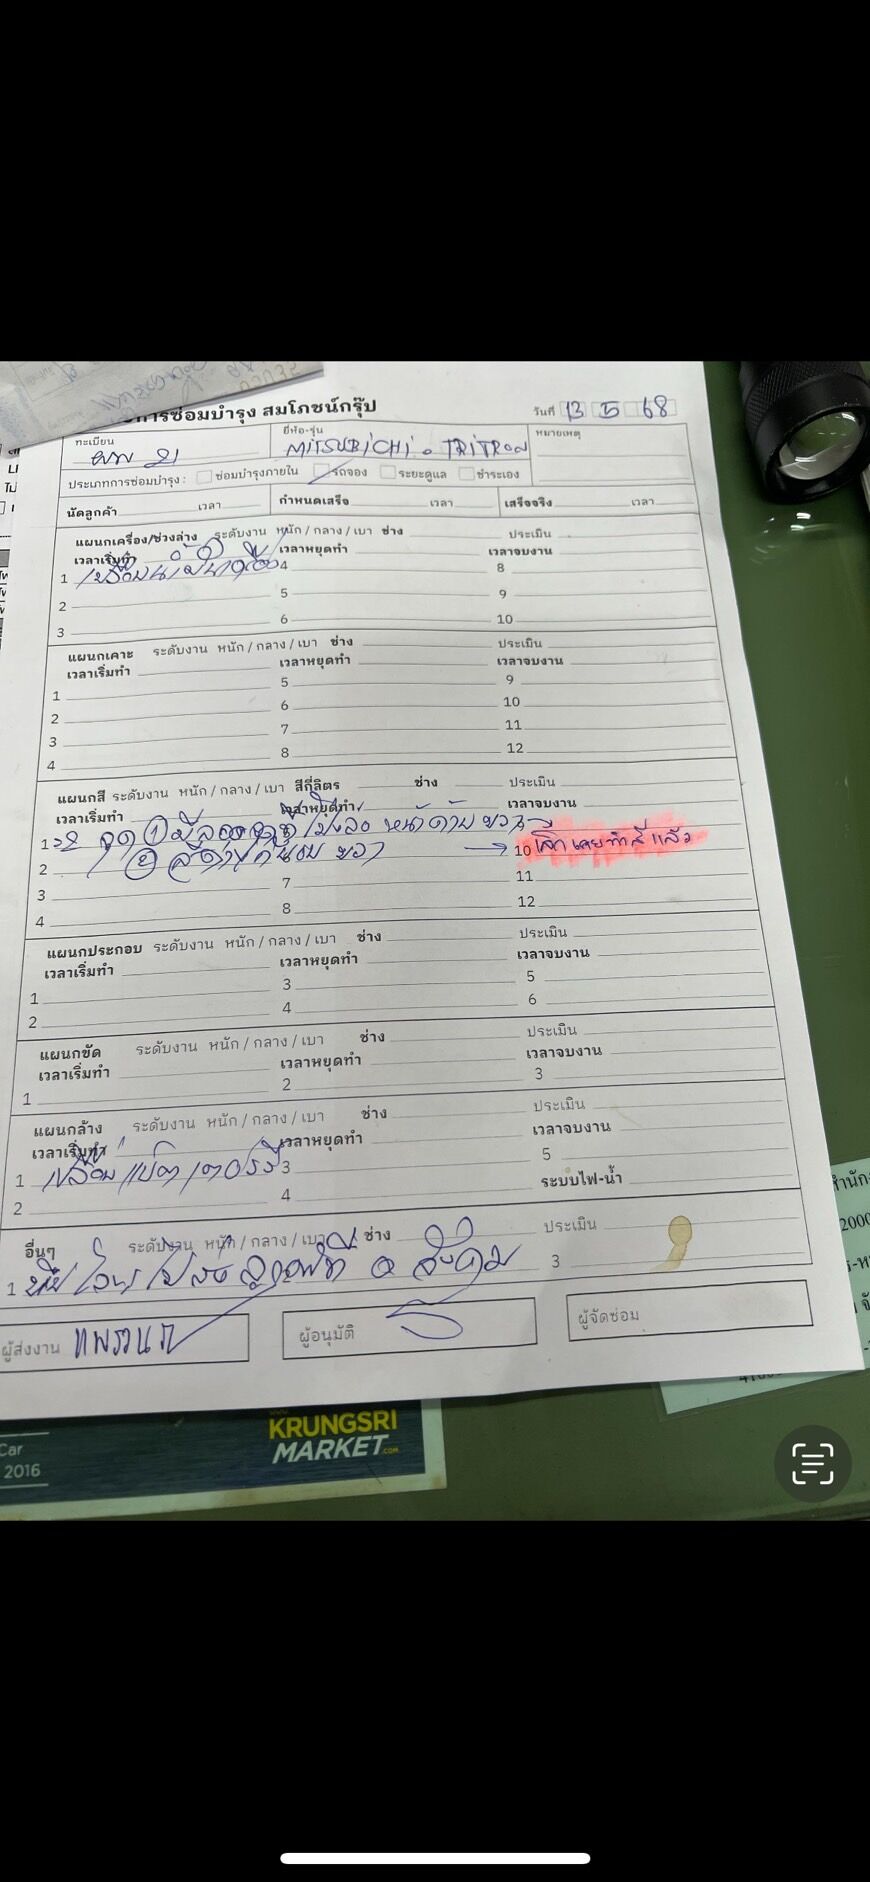 การซ่อมบำรุง สมโภชน์กรุ๊ป
วันที่ 13 5 68
ทะเบียน 21
ยี่ห้อ-รุ่น MITSUBICHI. TRITRON
หมายเหตุ
ประเภทการซ่อมบำรุง : ซ่อมบำรุงภายใน รถจอง ระยะดูแล ชำระเอง
นัดลูกค้า เวลา กำหนดเสร็จ เวลา เสร็จจริง เวลา
แผนกเครื่อง/ช่วงล่าง ระดับงาน หนัก / กลาง / เบา ช่าง ประเมิน
เวลาเริ่มทำ เวลาหยุดทำ เวลาจบงาน
1 เปลี่ยนน้ำมันเครื่อง 4 8
2 5 9
3 6 10
แผนกเคาะ ระดับงาน หนัก / กลาง / เบา ช่าง ประเมิน
เวลาเริ่มทำ เวลาหยุดทำ เวลาจบงาน
1 5 9
2 6 10
3 7 11
4 8 12
แผนกสี ระดับงาน หนัก / กลาง / เบา สีกี่ลิตร ช่าง ประเมิน
เวลาเริ่มทำ เวลาหยุดทำ เวลาจบงาน
1 2 จุด ① โป่งล้อ หน้าด้าน ขวา
2 ② ขวา → 10 เคยทำสีแล้ว
3 7 11
4 8 12
แผนกประกอบ ระดับงาน หนัก / กลาง / เบา ช่าง ประเมิน
เวลาเริ่มทำ เวลาหยุดทำ เวลาจบงาน
1 3 5
2 4 6
แผนกขัด ระดับงาน หนัก / กลาง / เบา ช่าง ประเมิน
เวลาเริ่มทำ เวลาหยุดทำ เวลาจบงาน
1 2 3
แผนกล้าง ระดับงาน หนัก / กลาง / เบา ช่าง ประเมิน
เวลาเริ่มทำ เวลาหยุดทำ เวลาจบงาน
1 เปลี่ยนแบตเตอรรี่ 3 5
2 4 ระบบไฟ-น้ำ
อื่นๆ ระดับงาน หนัก / กลาง / เบา ช่าง ประเมิน
1 ไปส่งลูกค้าที่ อ สังคม 3
ผู้ส่งงาน ผู้อนุมัติ ผู้จัดซ่อม
Car
2016
KRUNGSRI
MARKET.com